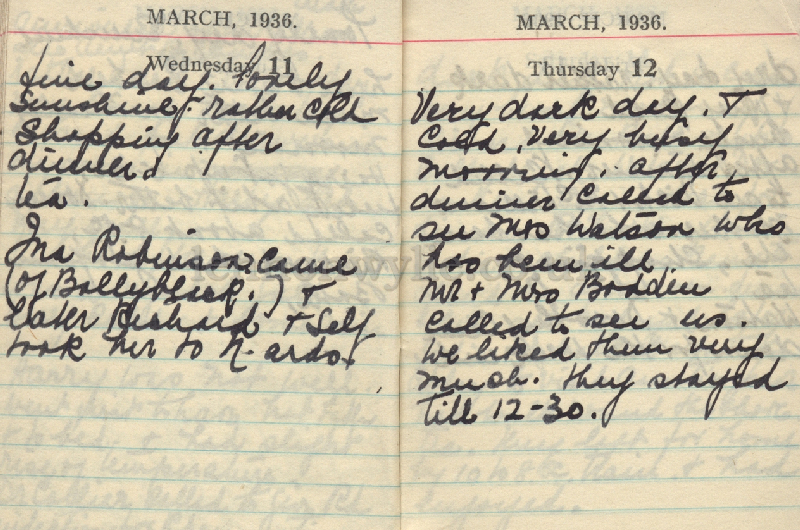 MARCH, 1936.
Wednesday 11
Fine day. Lovely
Sunshine - rather cold
Shopping after
dinner.
tea.
Ina Robinson came
(of Ballyblack.) +
later Richard + Self
took her to N. ards.
MARCH, 1936.
Thursday 12
Very dark day. +
Cold. Very busy
morning. after
dinner called to
see Mrs Watson who
has been ill
Mr + Mrs Boddie
called to see us.
We liked them very
much. they stayed
till 12-30.